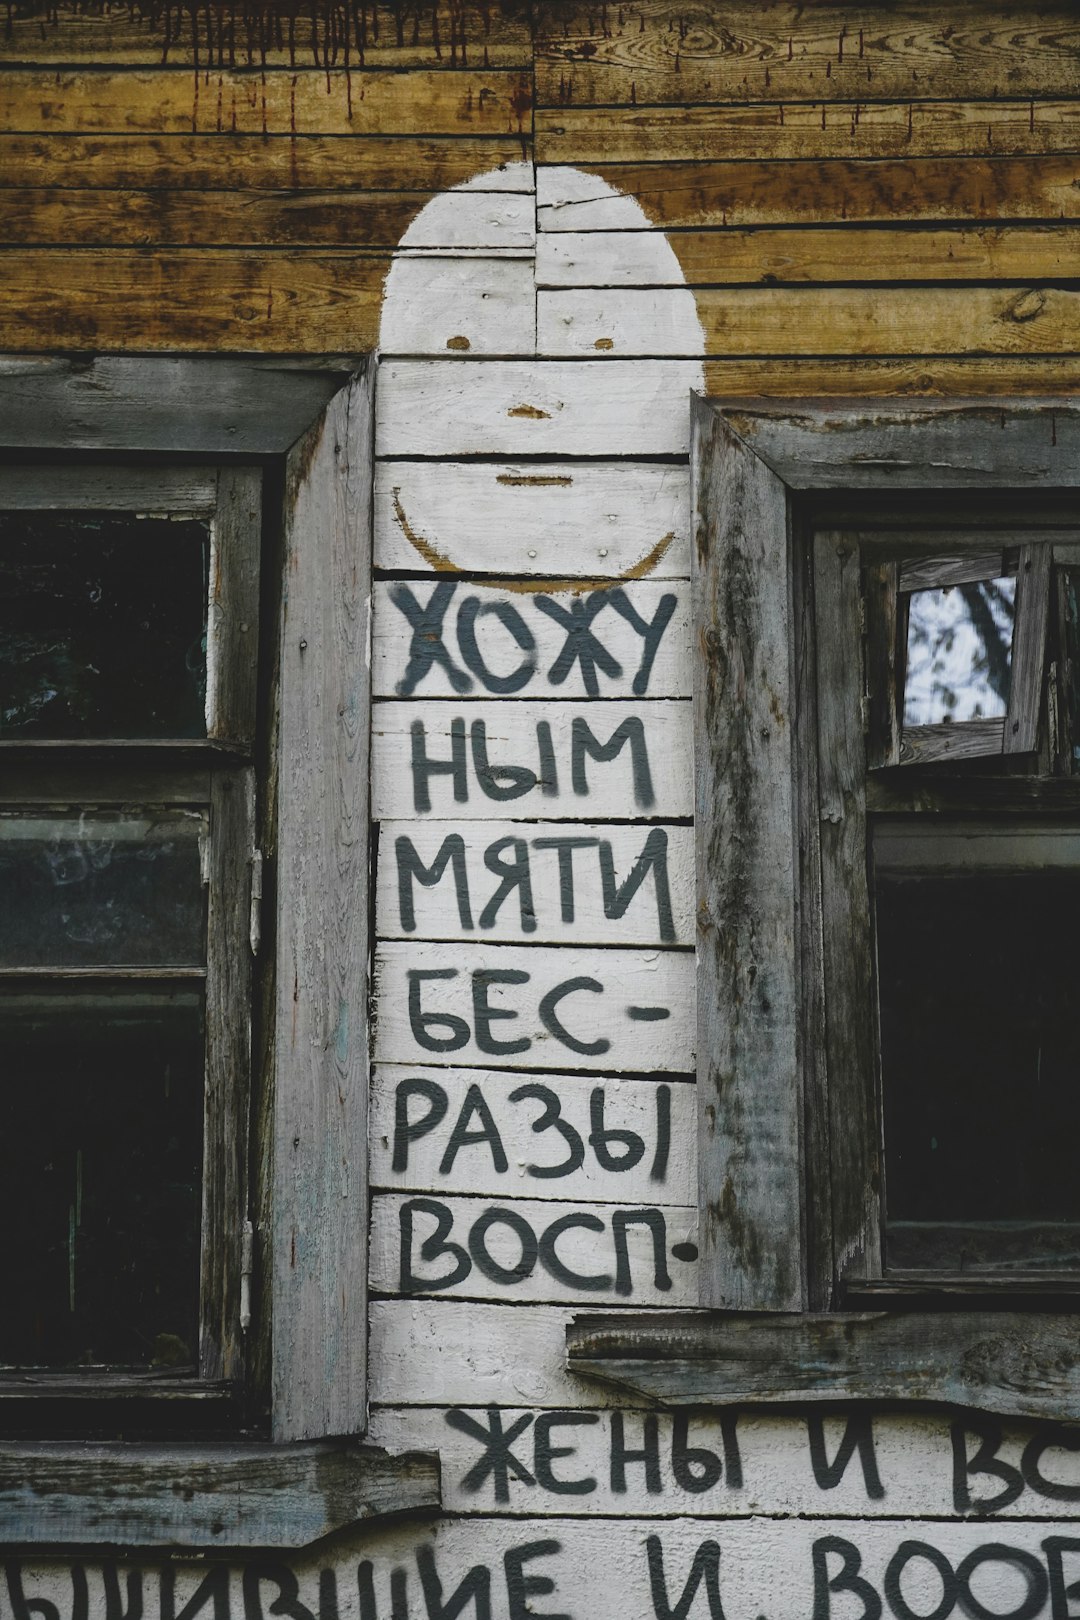 ХОЖУ
НЫМ
МЯТИ
БЕС-
РАЗЫ
ВОСП.
ЖЕНЫ И ВС
И ВООБ